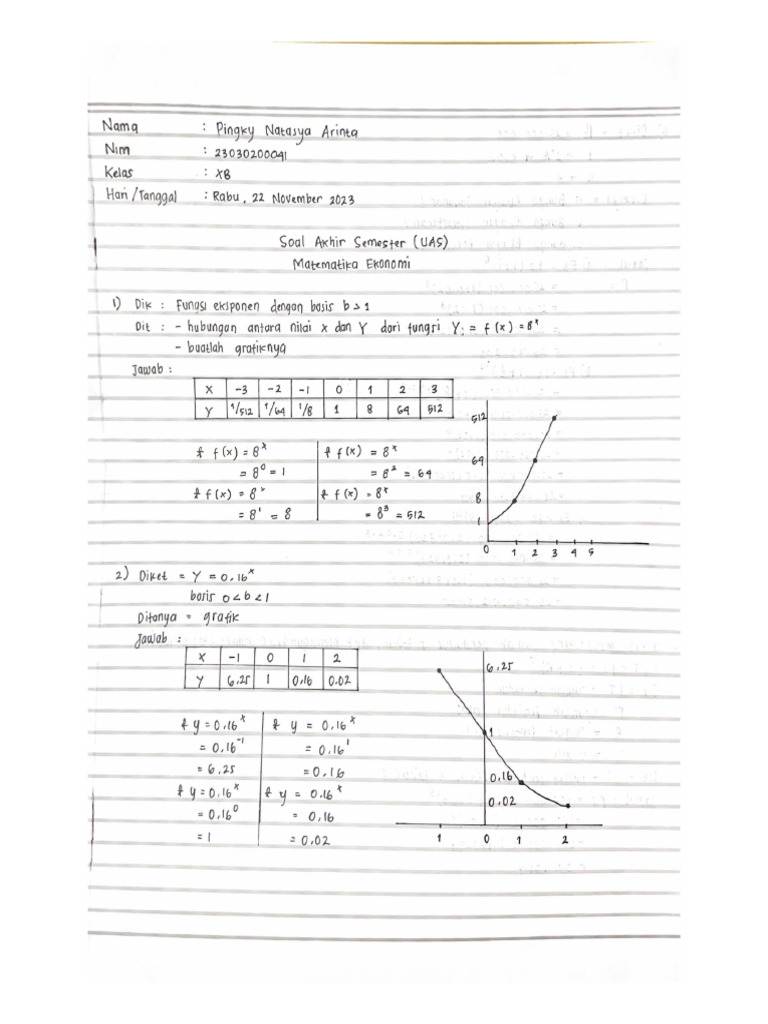 Nama : Pingky Natasya Arinta
Nim : 23030200041
Kelas : XB
Hari /Tanggal : Rabu, 22 November 2023
Soal Akhir Semester (UAS)
Matematika Ekonomi
1) Dik : Fungsi eksponen dengan basis b > 1
Dit : - hubungan antara nilai x dan Y dari fungsi Y: = f(x) = 8ˣ
- buatlah grafiknya
Jawab :
X -3 -2 -1 0 1 2 3
Y 1/512 1/64 1/8 1 8 64 512
* f(x) = 8ˣ * f(x) = 8ˣ
= 8⁰ = 1 = 8² = 64
* f(x) = 8ˣ * f(x) = 8ˣ
= 8¹ = 8 = 8³ = 512
512
64
8
1
0 1 2 3 4 5
2) Diket = Y = 0.16ˣ
basis 0 < b < 1
Ditanya = grafik
Jawab :
X -1 0 1 2
Y 6.25 1 0.16 0.02
* y = 0.16ˣ * y = 0.16ˣ
= 0.16⁻¹ = 0.16¹
= 6.25 = 0.16
* y = 0.16ˣ * y = 0.16ˣ
= 0.16⁰ = 0.16
= 1 = 0.02
6.25
1
0.16
0.02
1 0 1 2